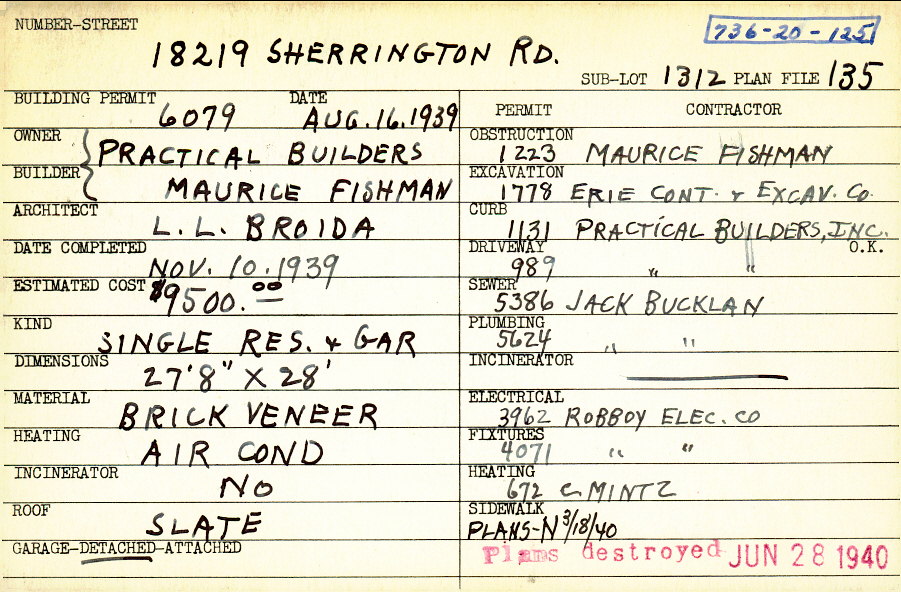 NUMBER-STREET
736-20-125
18219 SHERRINGTON RD.
SUB-LOT 1312 PLAN FILE 135
BUILDING PERMIT DATE
6079 AUG.16.1939
OWNER
PRACTICAL BUILDERS
BUILDER
MAURICE FISHMAN
ARCHITECT
L.L. BROIDA
DATE COMPLETED
NOV. 10.1939
ESTIMATED COST $9500.00
KIND
SINGLE RES. & GAR
DIMENSIONS
27'8" X 28'
MATERIAL
BRICK VENEER
HEATING
AIR COND
INCINERATOR
NO
ROOF
SLATE
GARAGE-DETACHED-ATTACHED
PERMIT CONTRACTOR
OBSTRUCTION
1223 MAURICE FISHMAN
EXCAVATION
1778 ERIE CONT. & EXCAV. CO.
CURB
1131 PRACTICAL BUILDERS, INC.
DRIVEWAY O.K.
989 " "
SEWER
5386 JACK BUCKLAN
PLUMBING
5624 " "
INCINERATOR
ELECTRICAL
3962 ROBBOY ELEC. CO
FIXTURES
4071 " "
HEATING
672 C. MINTZ
SIDEWALK
PLANS-N 3/18/40
Plans destroyed JUN 28 1940